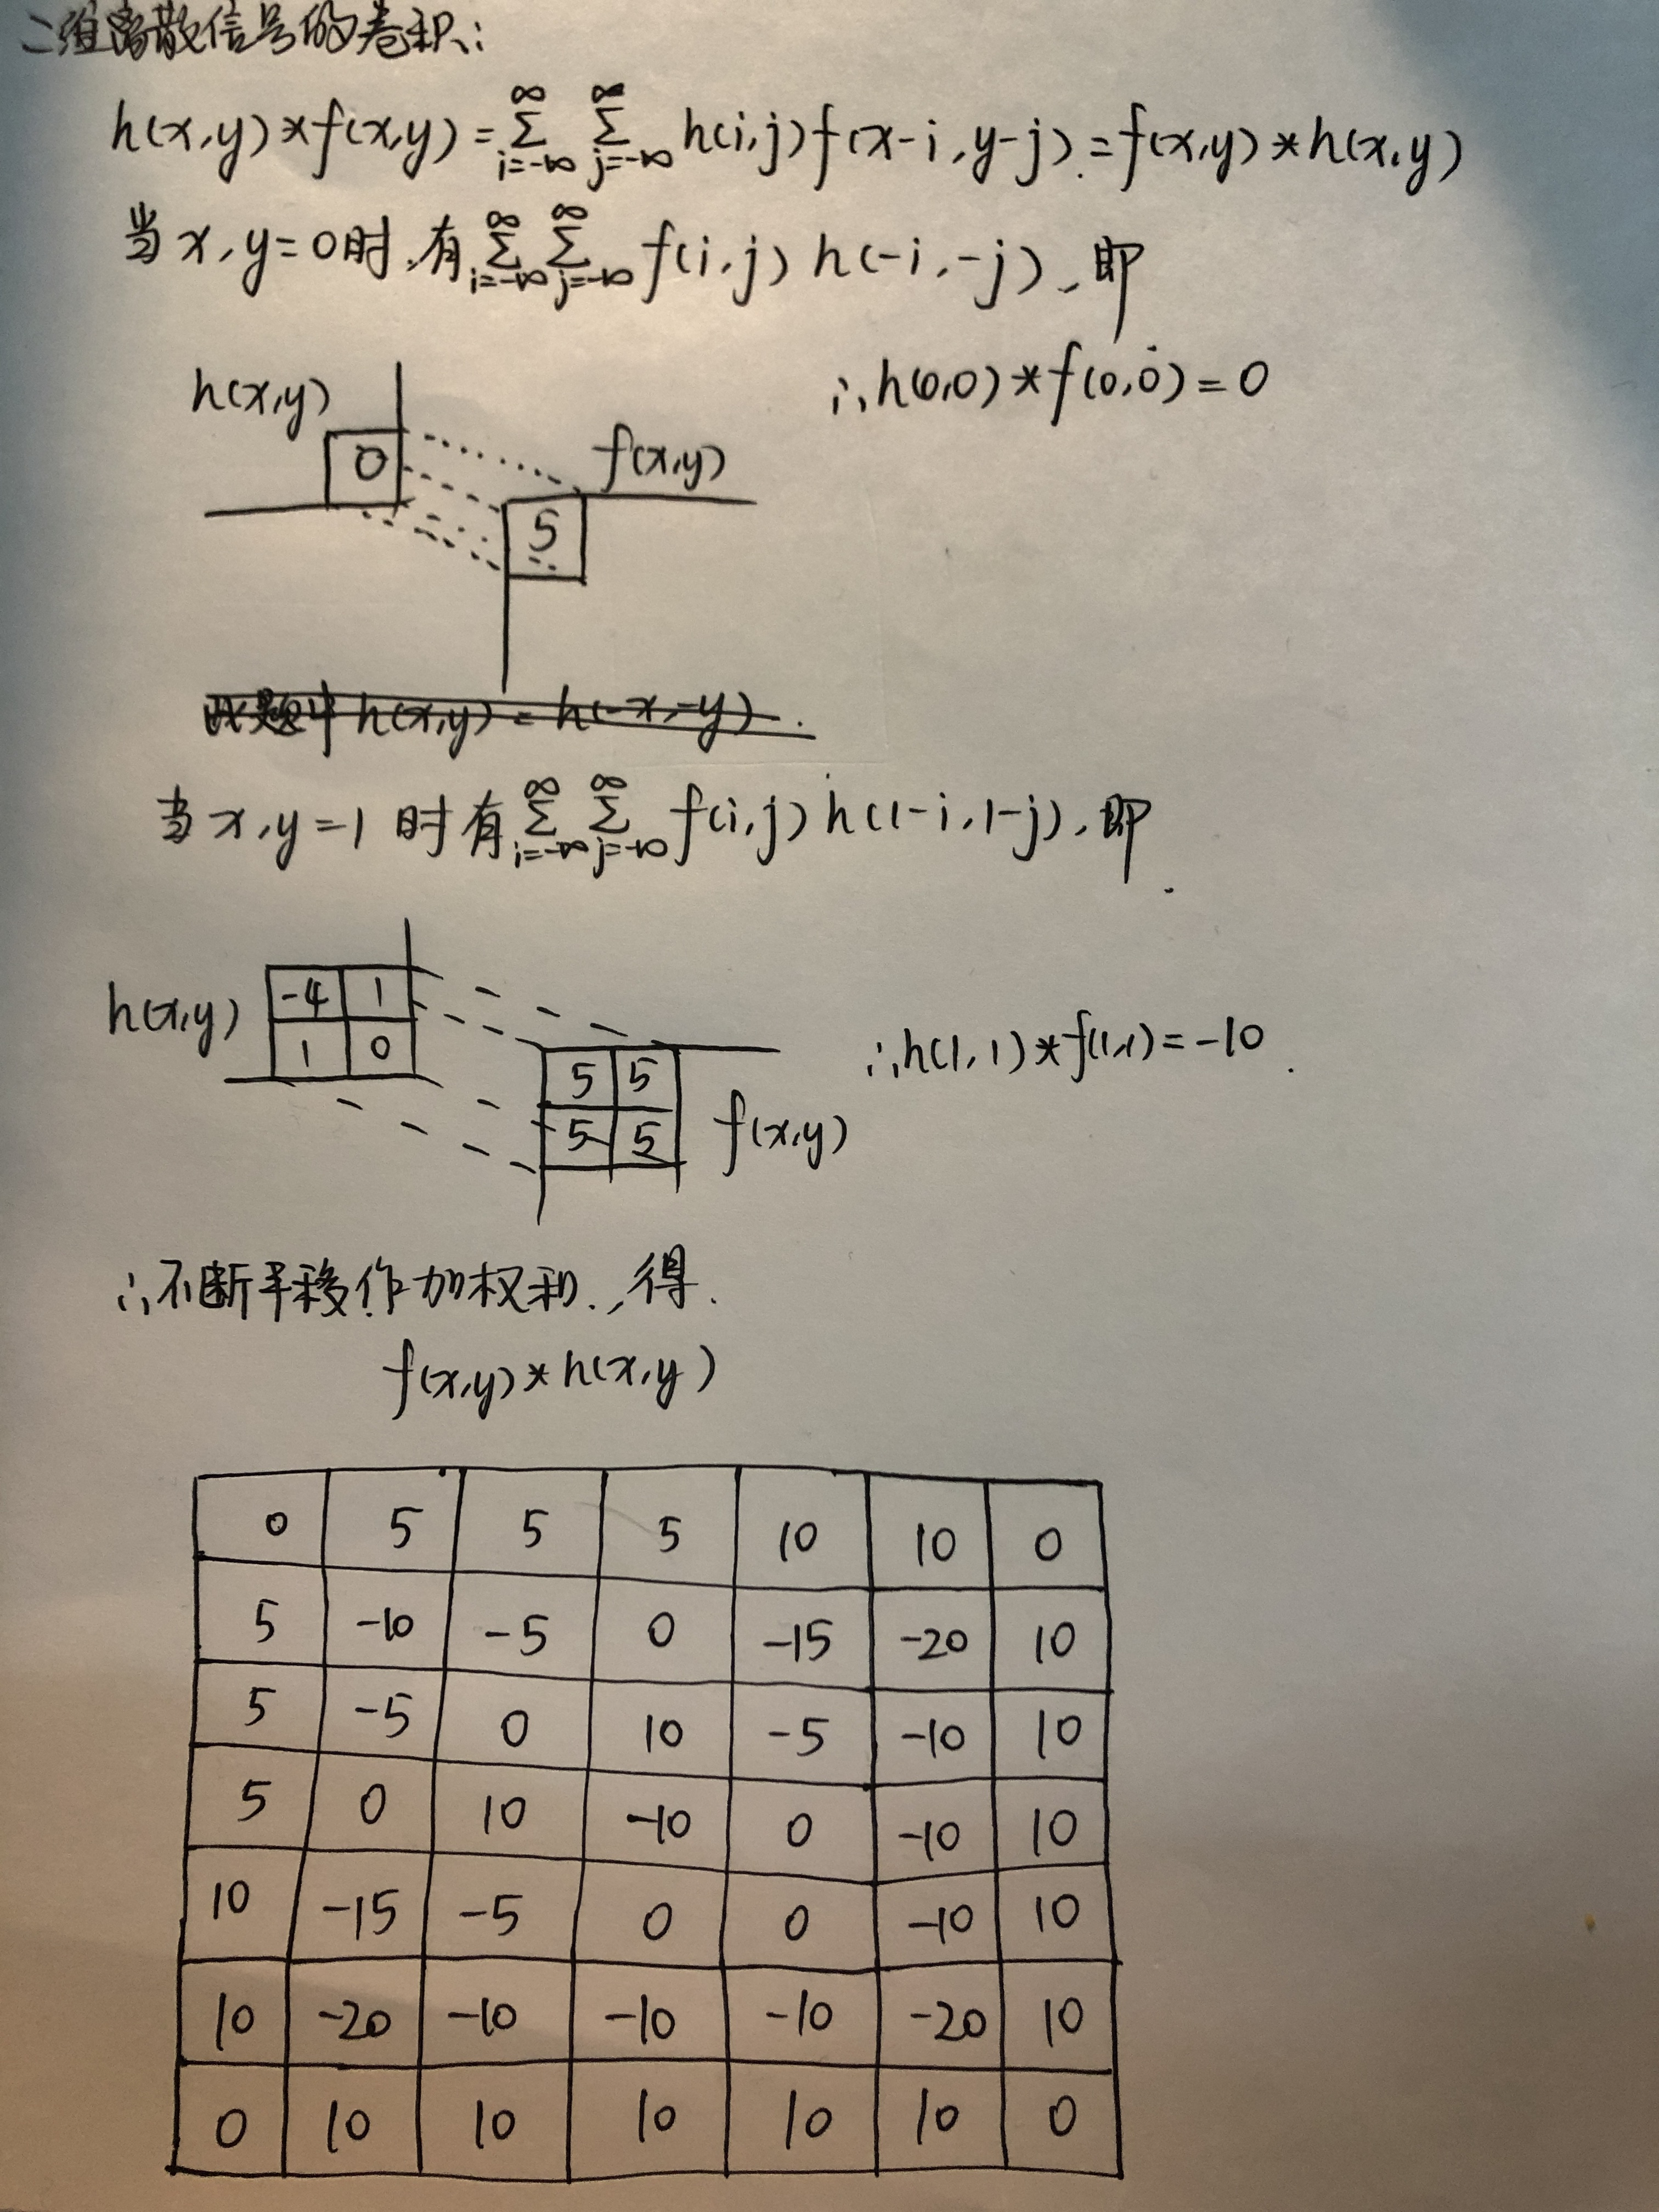 二维离散信号的卷积:
h(x,y)*f(x,y)=∑_{i=-∞}^{∞} ∑_{j=-∞}^{∞} h(i,j)f(x-i,y-j)=f(x,y)*h(x,y)
当x,y=0时,有∑_{i=-∞}^{∞} ∑_{j=-∞}^{∞} f(i,j)h(-i,-j),即
h(x,y) ∴h(0,0)*f(0,0)=0
0 f(x,y)
5
h(x,y)=h(-x,-y).
当x,y=1时有∑_{i=-∞}^{∞} ∑_{j=-∞}^{∞} f(i,j)h(1-i,1-j),即
h(x,y) -4 1
1 0
∴h(1,1)*f(1,1)=-10.
5 5
5 5 f(x,y)
∴不断平移作加权和,得.
f(x,y)*h(x,y)
0 5 5 5 10 10 0
5 -10 -5 0 -15 -20 10
5 -5 0 10 -5 -10 10
5 0 10 -10 0 -10 10
10 -15 -5 0 0 -10 10
10 -20 -10 -10 -10 -20 10
0 10 10 10 10 10 0